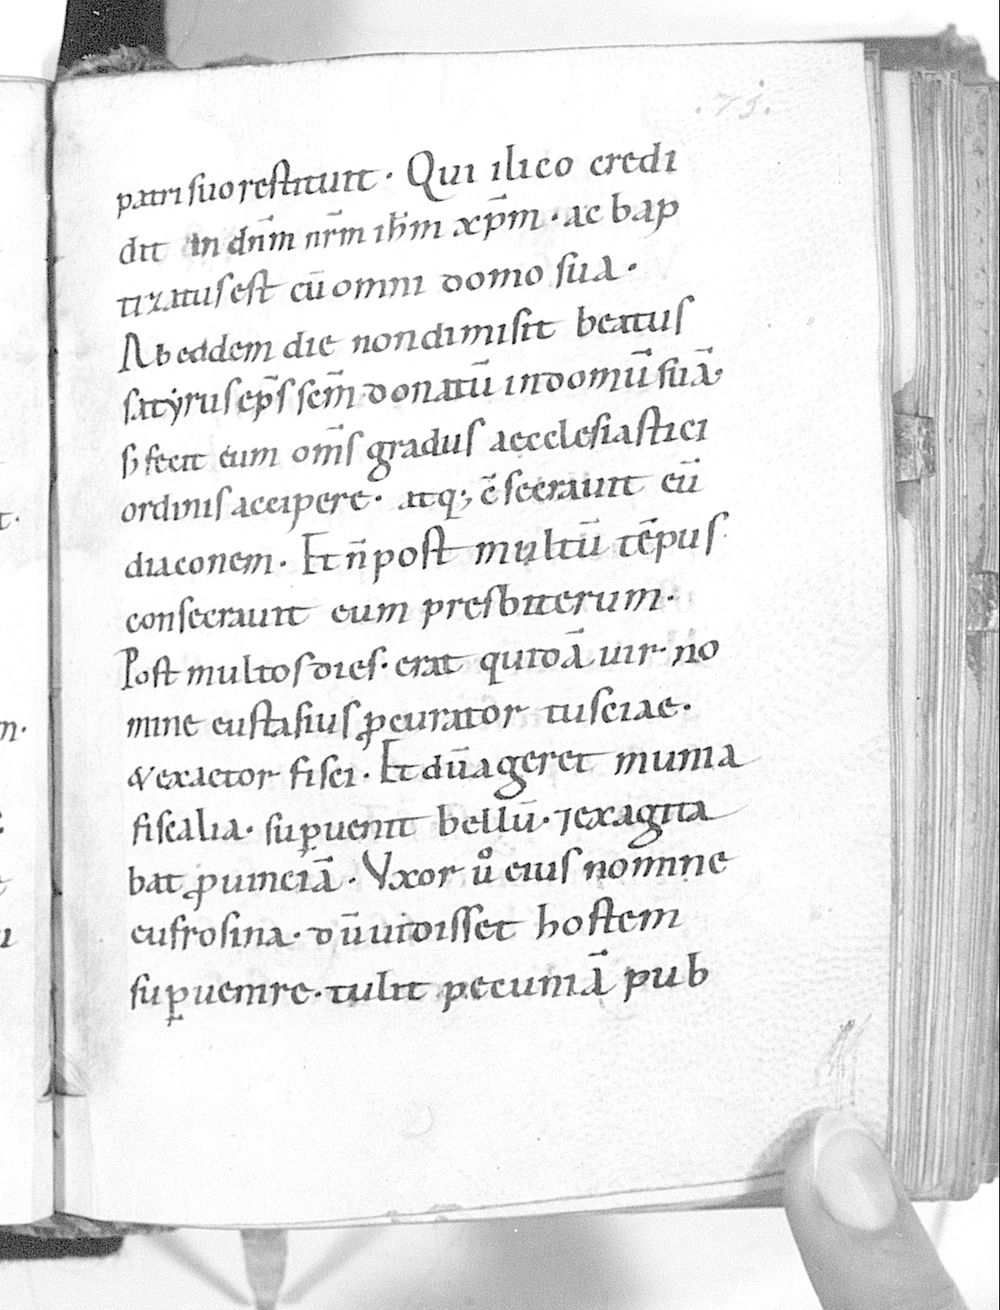 .73.
patri suo restituit. Qui ilico credi
dit in dn̄m nr̄m ihm̄ xp̄m. ac bap
tizatus est cū omni domo sua.
Ab eadem die non dimisit beatus
satyrus ep̄s sc̄m donatū in domū suā.
s; fecit eum om̄s gradus aecclesiastici
ordinis accipere. atq; c̄secrauit eū
diaconem. Et n̄ post multū tēpus
consecrauit eum presbiterum.
Post multos dies. erat quidā uir no
mine eustasius ꝓcurator tusciae.
& exactor fisci. Et dū ageret munia
fiscalia. suꝑuenit bellū. ⁊ exagita
bat ꝓuinciā. Vxor ů eius nomine
eufrosina. dū uidisset hostem
suꝑuenire. tulit pecuniā pub